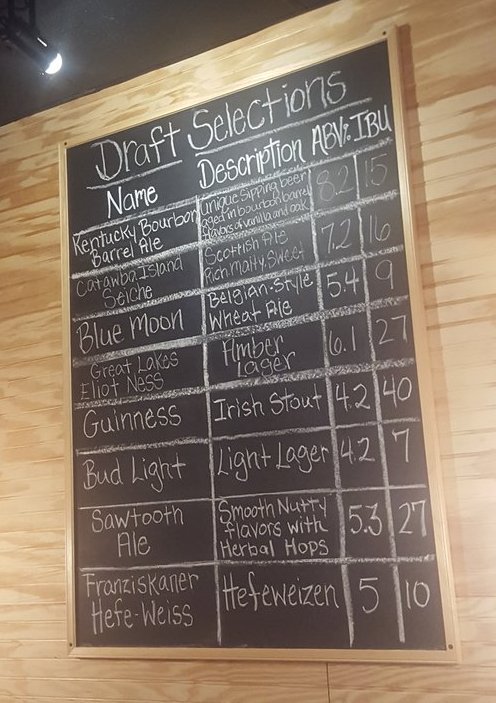 Draft Selections
Name Description ABV% IBU
Kentucky Bourbon
Barrel Ale
Unique Sipping beer
aged in bourbon barrel
flavors of vanilla and oak
8.2 15
Catawba Island
Seiche
Scottish Ale
Rich, Malty, Sweet
7.2 16
Blue Moon
Belgian-Style
Wheat Ale
5.4 9
Great Lakes
Eliot Ness
Amber
Lager
6.1 27
Guinness
Irish Stout
4.2 40
Bud Light
Light Lager
4.2 7
Sawtooth
Ale
Smooth Nutty
flavors with
Herbal Hops
5.3 27
Franziskaner
Hefe-Weiss
Hefeweizen
5 10